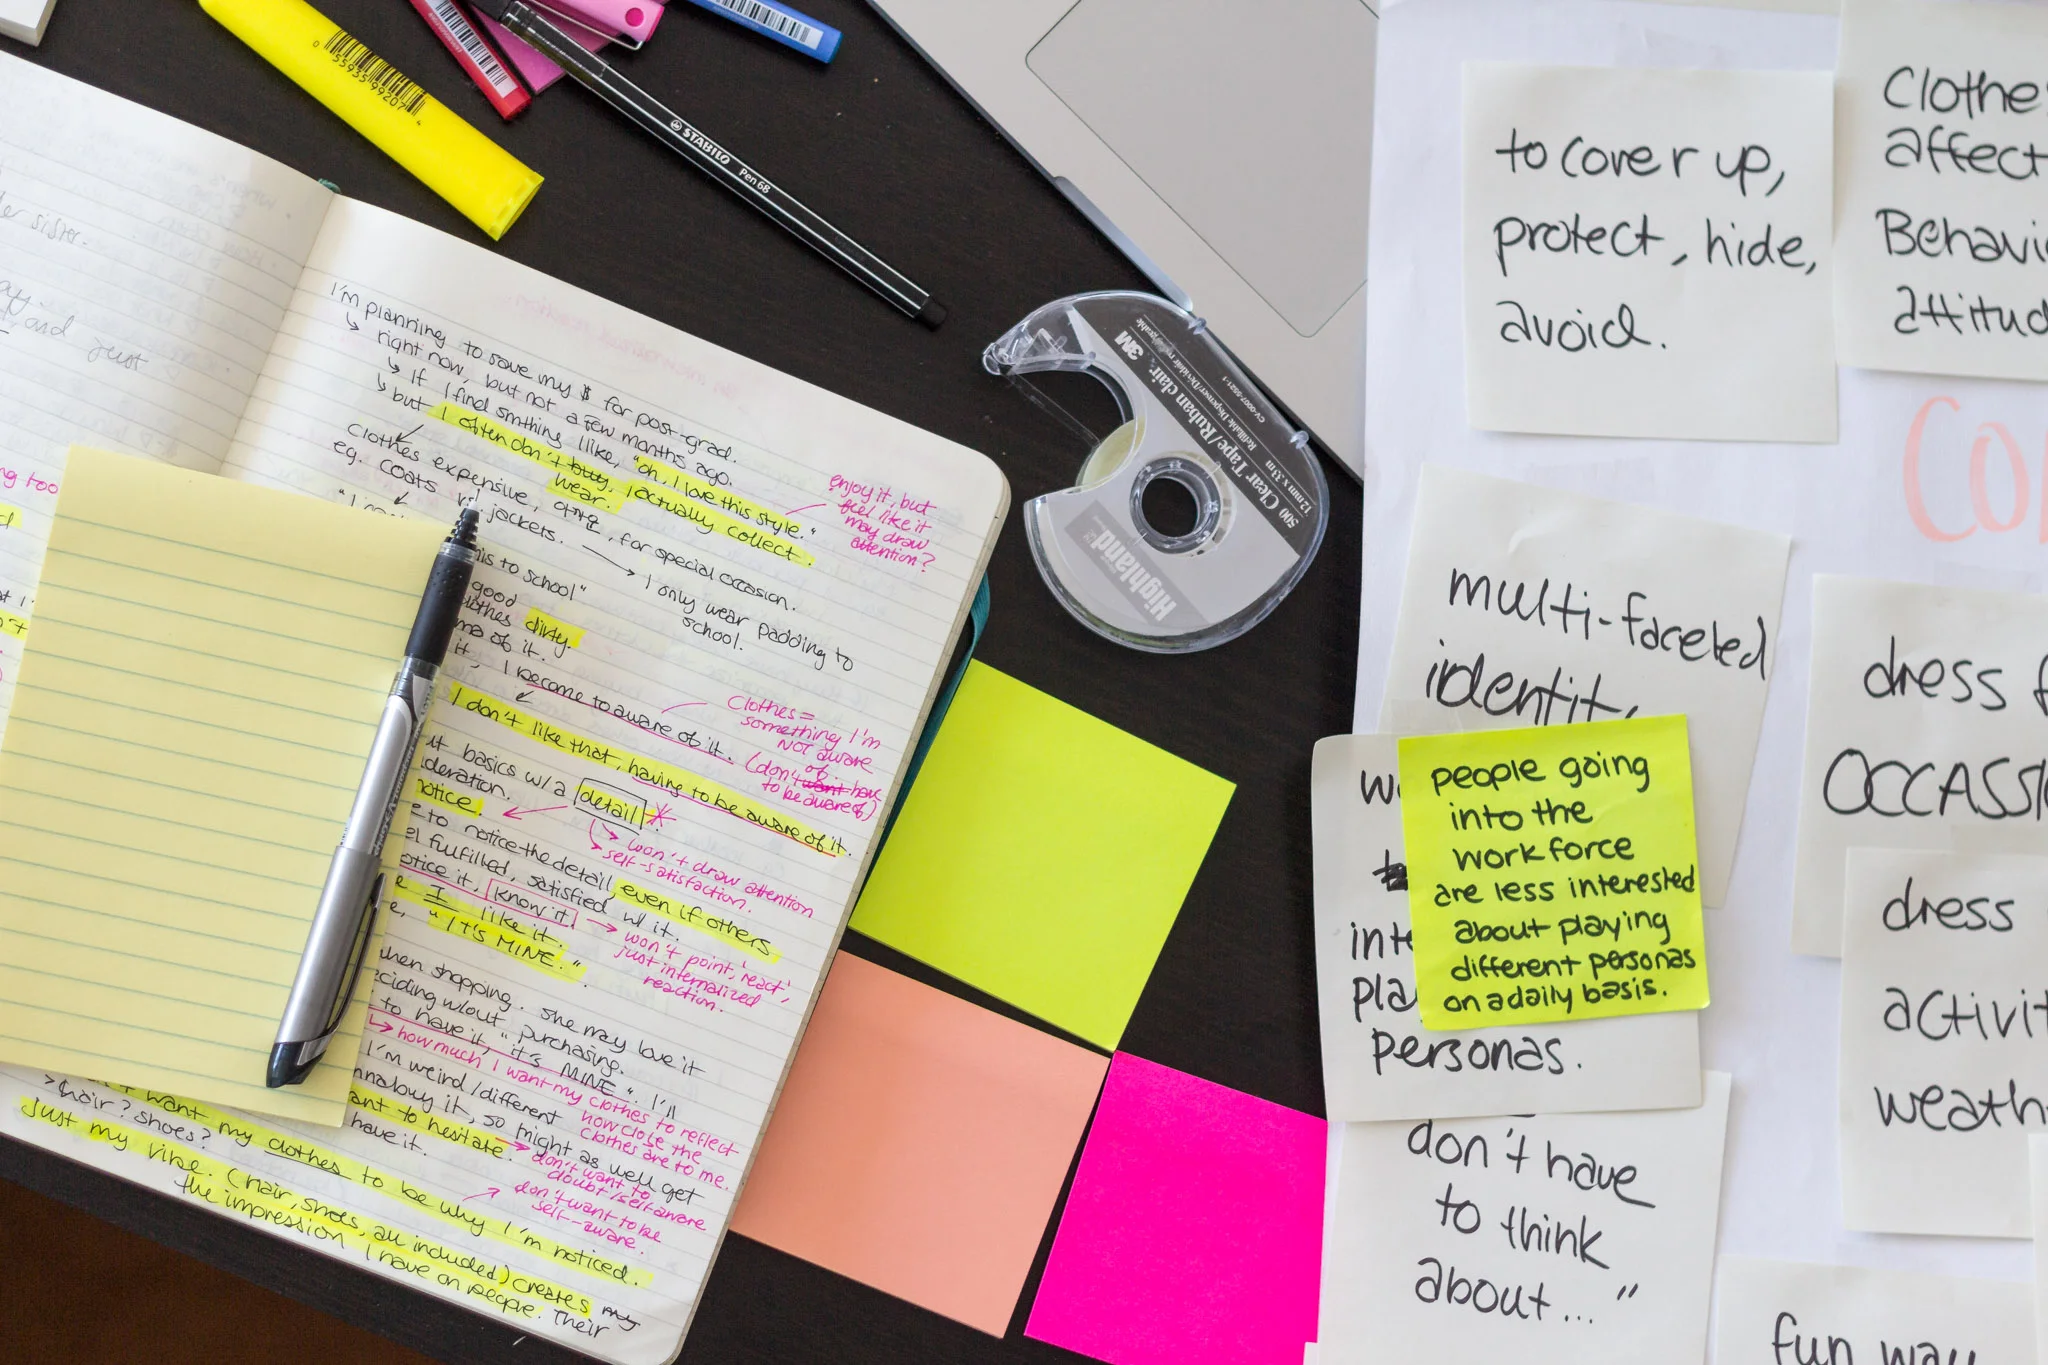 I'm planning to save my $ for post-grad.
↳ right now, but not a few months ago.
↳ If I find smthing I like, "oh, I love this style."
↳ but I often don't buy. I actually collect.
wear.
Clothes expensive, for special occasion.
eg. coats jackets. → I only wear padding to
school.
this to school"
good
clothes dirty.
of it.
it, I become to aware of it.
I don't like that, having to be aware of it.
basics w/a detail *
notice.
to notice the detail, even if others
fulfilled, satisfied w/ it.
notice it, know it.
I like it.
"IT'S MINE."
when shopping. She may love it
w/out purchasing.
to have it, "it's MINE". I'll
I'm weird/different
buy it, so might as well get
want to hesitate.
have it.
want my clothes to be why I'm noticed.
> (hair? shoes?
just my vibe. (hair, shoes, all included) creates my
the impression I have on people. Their
enjoy it, but
feel like it
may draw
attention?
Clothes =
something I'm
NOT aware
of.
(don't want have
to be aware of)
↳ won't draw attention
↳ self-satisfaction.
→ won't point, 'react',
just internalized
reaction.
↳ how much I want my clothes to reflect
how close the
clothes are to me.
→ don't want to
doubt/self aware
don't want to be
self-aware.
er sister.
and just
ng too
0 55935 99207 4
STABILO Pen 68
3M
500 Clear Tape/Ruban clair
12 mm x 33m
Refillable Dispenser/Dévidoir rechargeable
CV-0007-5521-1
Highland
to cover up,
protect, hide,
avoid.
Clothe
affect
Behavi
attitud
CO
multi-faceted
identity
people going
into the
workforce
are less interested
about playing
different personas
on a daily basis.
w
inte
pla
personas.
don't have
to think
about..."
dress f
OCCASSI
dress
activit
weath
fun way